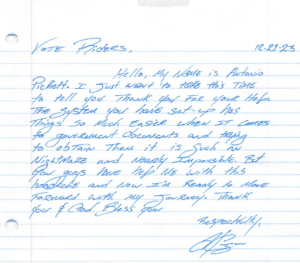 Vote Riders. 12-29-23
Hello, My Name is Antonio
Pickett. I Just want to take this Time
to tell you Thank You For Your Help.
The System you have set-up has
Things so Much Easier when it comes
to government Documents and trying
to obtain Them it is Such a
Nightmare and Nearly Impossible. But
You guys have Help Me with this
headache and Now I'm Ready to Move
Forward with my Journey. Thank
You & God Bless You
Respectfully,